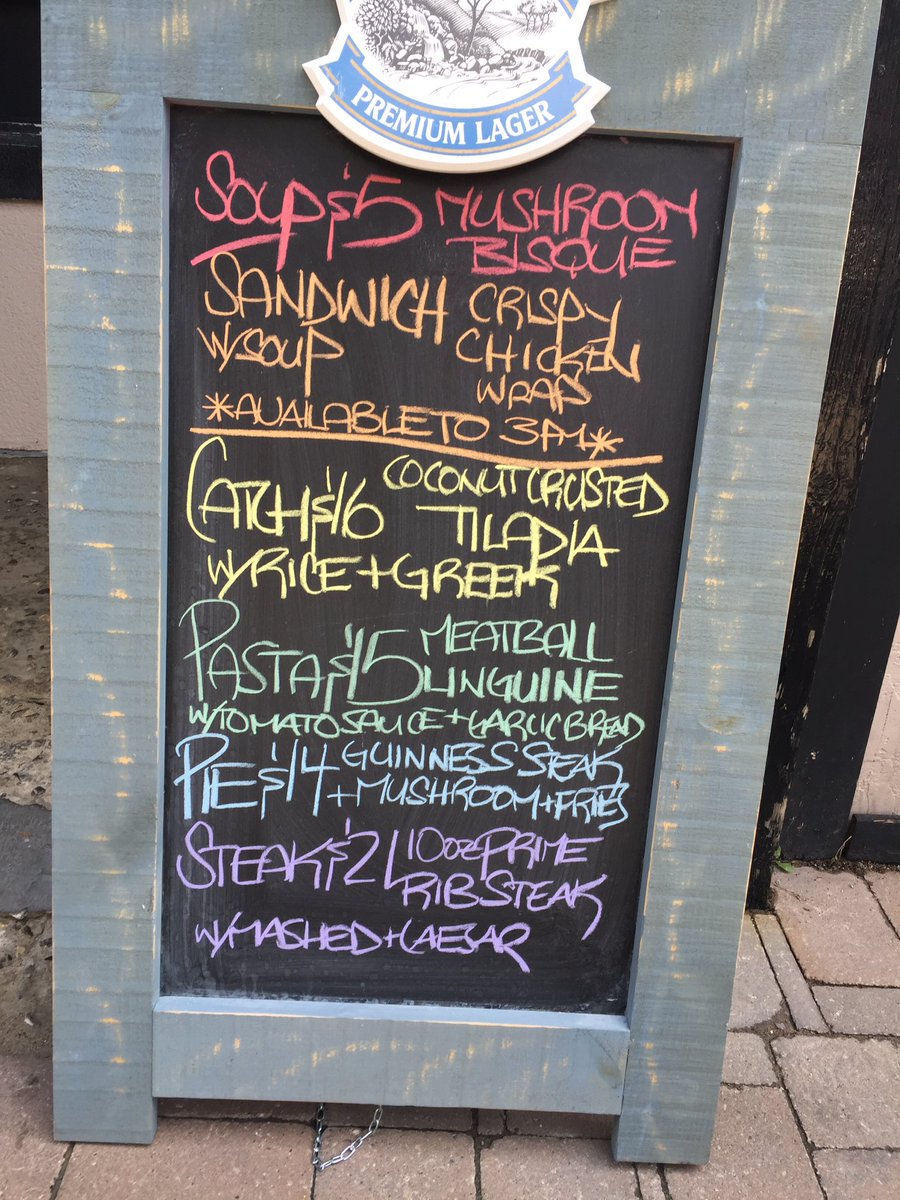 PREMIUM LAGER
SOUP $5 MUSHROOM
BISQUE
SANDWICH CRISPY
W/SOUP CHICKEN
WRAP
*AVAILABLE TO 3PM*
CATCH $16 COCONUT CRUSTED
TILAPIA
W/RICE + GREEK
PASTA $15 MEATBALL
LINGUINE
W/TOMATO SAUCE + GARLIC BREAD
PIE $14 GUINNESS STEAK
+ MUSHROOM + FRIES
STEAK $21 10OZ PRIME
RIB STEAK
W/MASHED + CAESAR